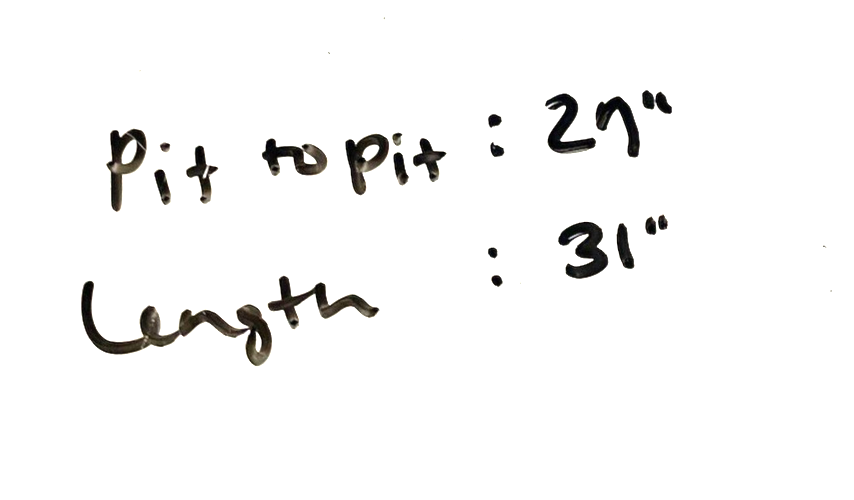 Pit to pit : 27"
Length : 31"